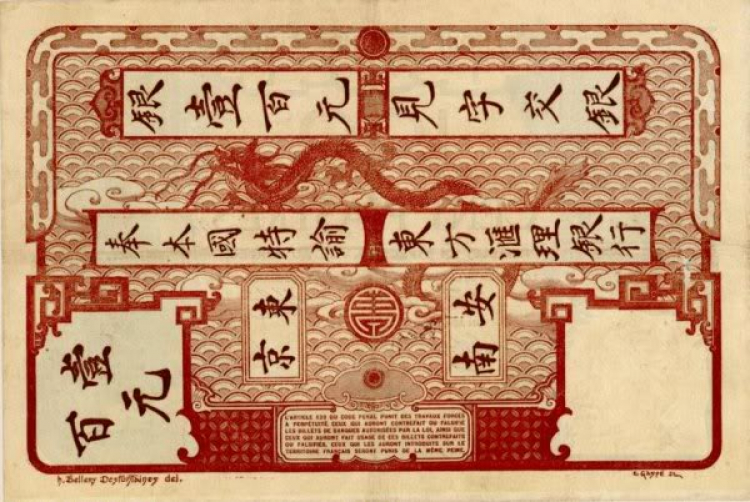 銀壹百元
見字交銀
奉本國特諭
東方滙理銀行
東京
安南
壹百元
L'ARTICLE DU CODE PENAL PUNIT DES TRAVAUX FORCÉS
A PERPÉTUITÉ CEUX QUI AURONT CONTREFAIT OU FALSIFIÉ
LES BILLETS DE BANQUES AUTORISÉES PAR LA LOI, AINSI QUE
CEUX QUI AURONT FAIT USAGE DE CES BILLETS CONTREFAITS
OU FALSIFIÉS. CEUX QUI LES AURONT INTRODUITS SUR LE
TERRITOIRE FRANÇAIS SERONT PUNIS DE LA MÊME PEINE.
del.